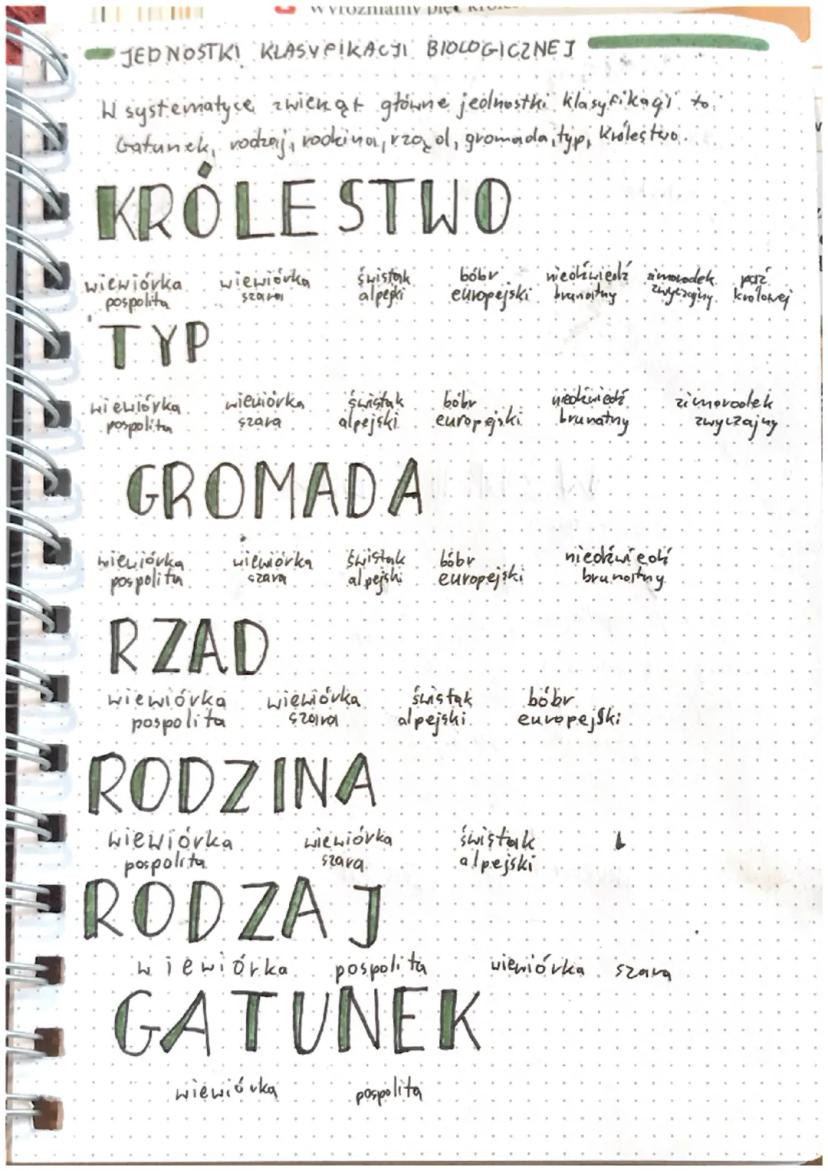 Wyróżniamy pięć
JEDNOSTKI KLASYFIKACJI BIOLOGICZNEJ
W systematyce zwierząt główne jednostki klasyfikacji to:
Gatunek, rodzaj, rodzina, rząd, gromada, typ, królestwo.
KRÓLESTWO
wiewiórka wiewiórka świstak bóbr niedźwiedź zimorodek paź
pospolita szara alpejski europejski brunatny zwyczajny królowej
TYP
wiewiórka wiewiórka świstak bóbr niedźwiedź zimorodek
pospolita szara alpejski europejski brunatny zwyczajny
GROMADA
wiewiórka wiewiórka świstak bóbr niedźwiedź
pospolita szara alpejski europejski brunatny
RZAD
wiewiórka wiewiórka świstak bóbr
pospolita szara alpejski europejski
RODZINA
wiewiórka wiewiórka świstak
pospolita szara alpejski
RODZAJ
wiewiórka pospolita wiewiórka szara
GATUNEK
wiewiórka pospolita